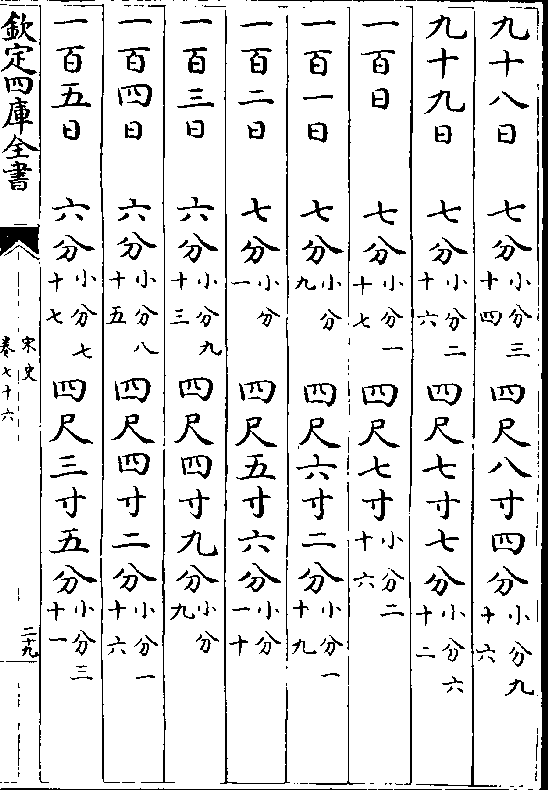 九十八日 七分小分三十四 四尺八寸四分小分九十六
九十九日 七分小分二十六 四尺七寸七分小分六十二
一百日 七分小分一十七 四尺七寸小分二十六
一百一日 七分小分九 四尺六寸二分小分一十九
一百二日 七分小分一 四尺五寸六分小分一十
一百三日 六分小分九十三 四尺四寸九分小分九
一百四日 六分小分八十五 四尺四寸二分小分一十六
一百五日 六分小分七十七 四尺三寸五分小分三十一
欽定四庫全書
宋史
卷七十六
二十九